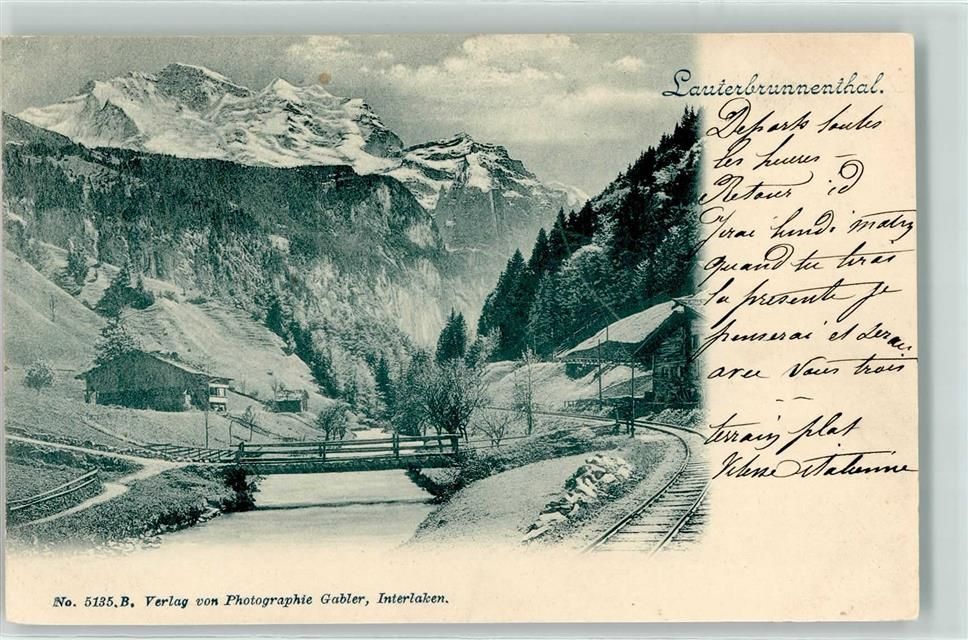 Lauterbrunnenthal.
Depart toutes
les heures —
Retour id
J'irai lundi matin
quand tu liras
la présente je
penserai et serai
avec vous trois
terrain plat
Vitesse italienne
No. 5135.B. Verlag von Photographie Gabler, Interlaken.